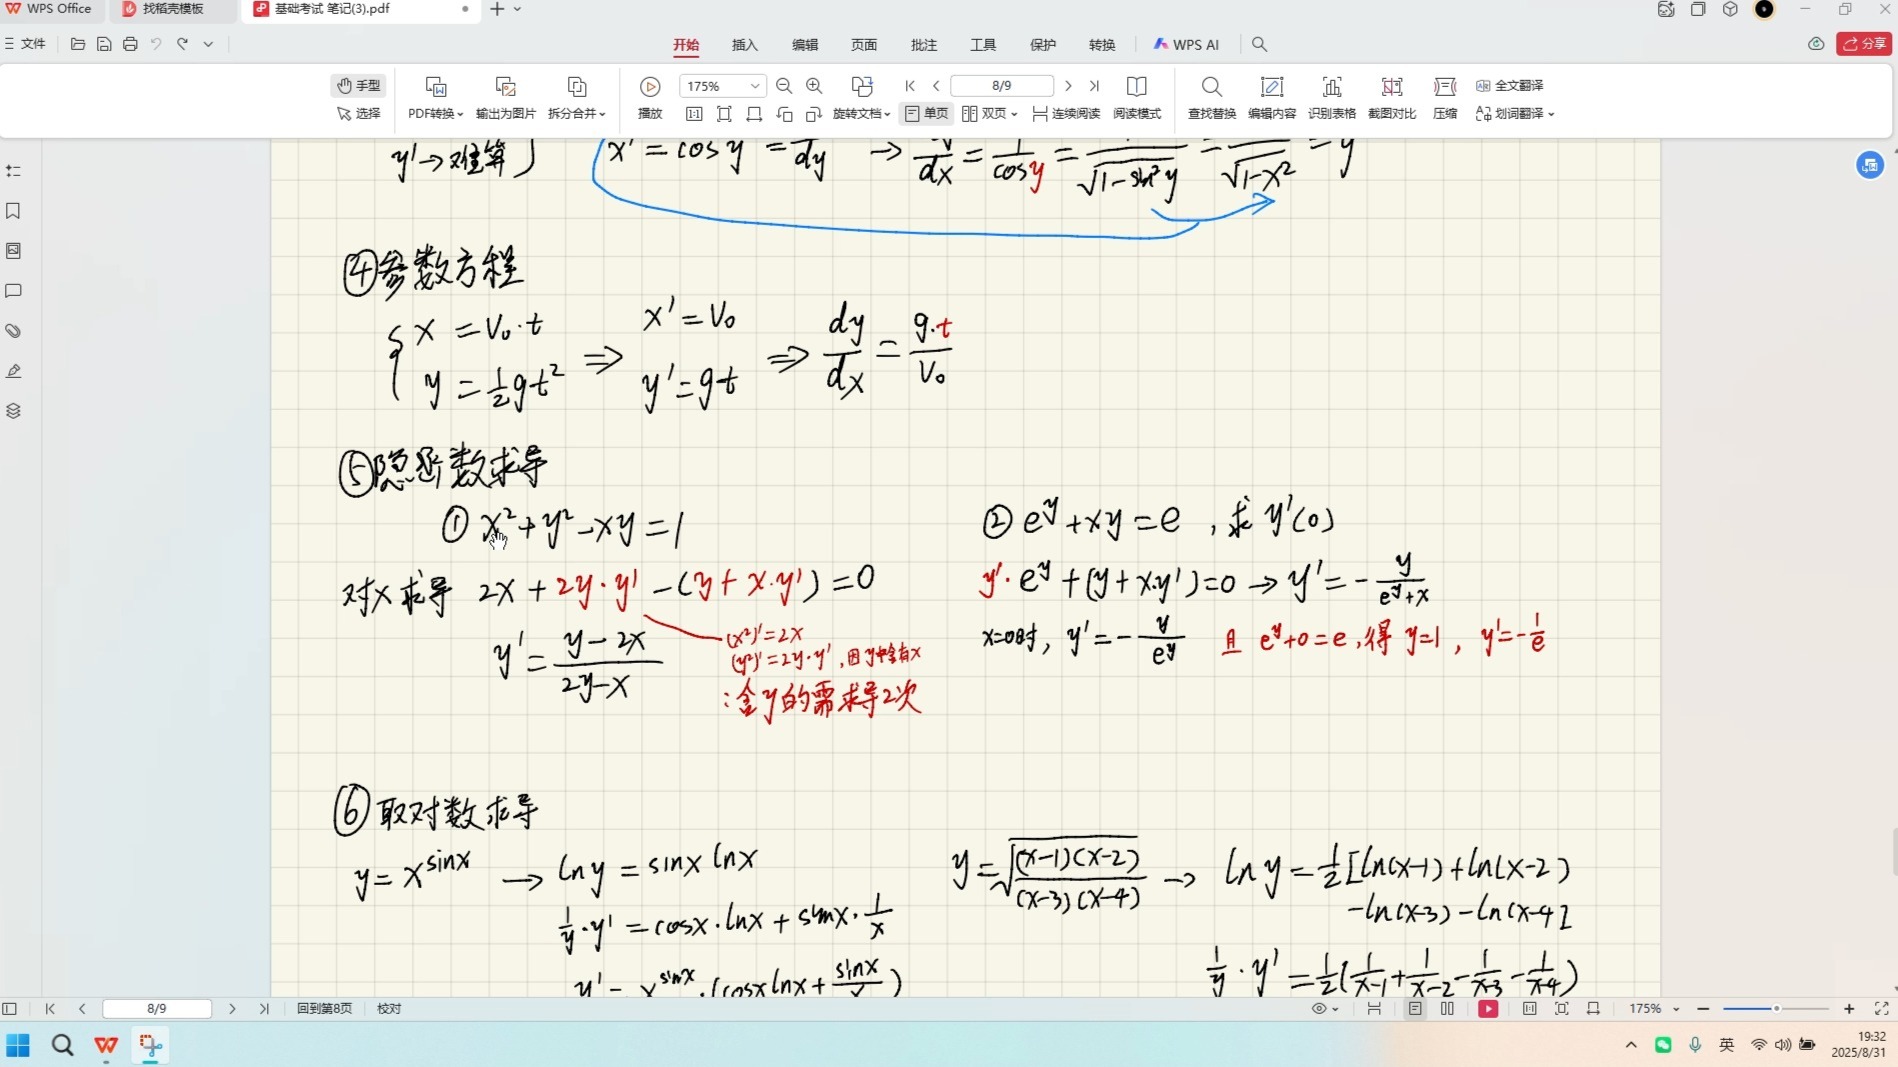 WPS Office 找稻壳模板 基础考试 笔记(3).pdf
文件 开始 插入 编辑 页面 批注 工具 保护 转换 WPS AI 分享
手型 选择 PDF转换 输出为图片 拆分合并 播放 175% 旋转文档 8/9 单页 双页 连续阅读 阅读模式 查找替换 编辑内容 识别表格 截图对比 压缩 全文翻译 划词翻译
y'→难算} x' = cosy = /dy → /dx = 1/cosy = /√(1-sin²y) = /√(1-x²) = y'
④参数方程
{ x = V₀·t ⇒ x' = V₀ ⇒ dy/dx = g·t/V₀
y = ½gt² y' = gt
⑤隐函数求导
① x²+y²-xy=1
对x求导 2x + 2y·y' -(y+x·y')=0
y' = (y-2x)/(2y-x)
(x²)'=2x
(y²)'=2y·y', 因y中含有x
:含y的需求导2次
② e^y+xy=e ,求y'(0)
y'·e^y+(y+x·y')=0 → y'=- y/(e^y+x)
x=0时, y'=- y/e^y 且 e^y+0=e,得 y=1, y'=-1/e
⑥取对数求导
y=x^sinx → lny = sinx lnx
1/y·y' = cosx·lnx + sinx·1/x
y' = x^sinx·(cosxlnx + sinx/x)
y=√((x-1)(x-2)/(x-3)(x-4)) → lny=½[ln(x-1)+ln(x-2)
-ln(x-3)-ln(x-4]
1/y·y'=½(1/x-1+1/x-2-1/x-3-1/x-4)
8/9 回到第8页 校对 175%
英 19:32
2025/8/31